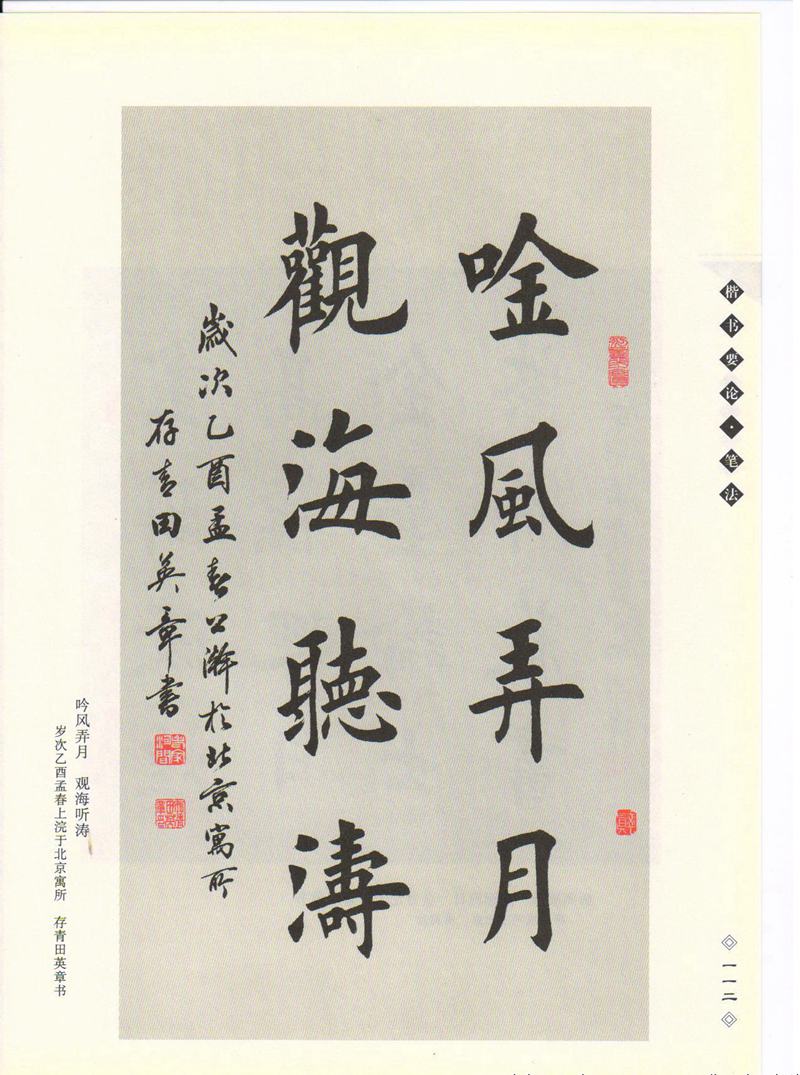 楷书要论·笔法
唫風弄月
觀海聽濤
歲次乙酉孟春上澣於北京寓所
存青田英章書
吟风弄月 观海听涛
岁次乙酉孟春上浣于北京寓所 存青田英章书
一一二